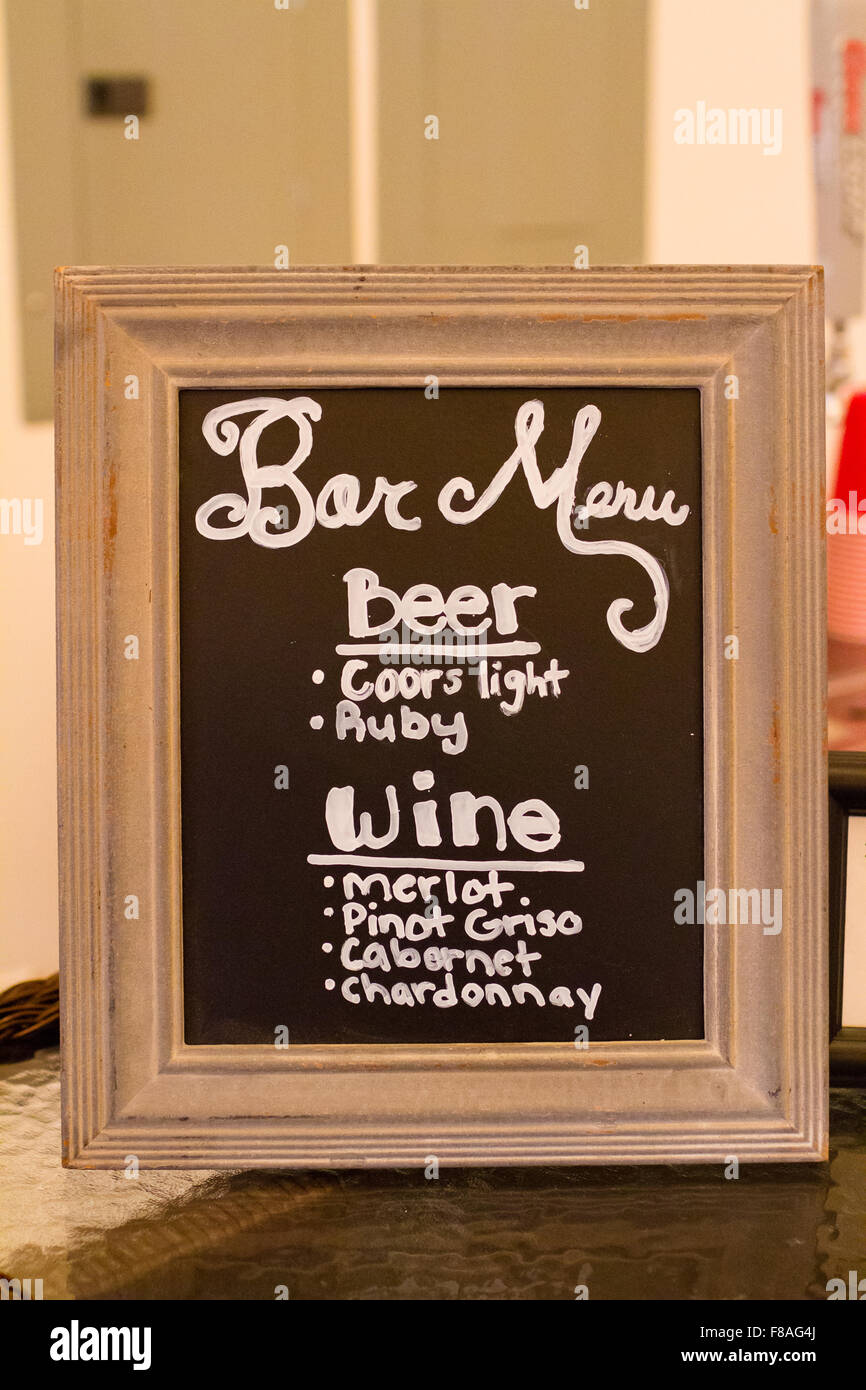 Bar Menu
Beer
• Coors light
• Ruby
Wine
• Merlot.
• Pinot Griso
• Cabernet
• Chardonnay
alamy
alamy
Image ID: F8AG4J
www.alamy.com